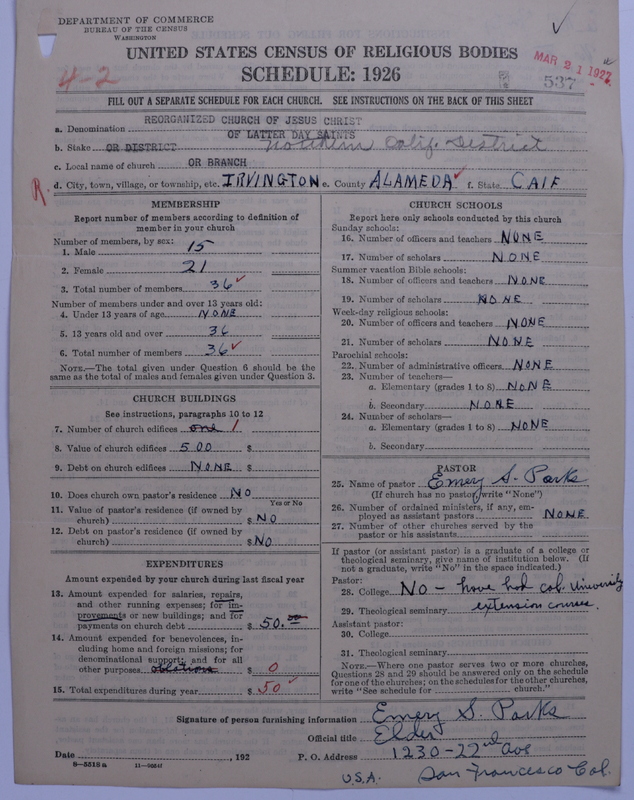 DEPARTMENT OF COMMERCE
BUREAU OF THE CENSUS
WASHINGTON
UNITED STATES CENSUS OF RELIGIOUS BODIES
SCHEDULE: 1926
4-2
MAR 21 1927
537
FILL OUT A SEPARATE SCHEDULE FOR EACH CHURCH. SEE INSTRUCTIONS ON THE BACK OF THIS SHEET
REORGANIZED CHURCH OF JESUS CHRIST
a. Denomination OF LATTER DAY SAINTS
b. Stake OR DISTRICT Northern Calif. District
c. Local name of church OR BRANCH
R. d. City, town, village, or township, etc. IRVINGTON e. County ALAMEDA f. State CAIF
MEMBERSHIP
Report number of members according to definition of member in your church
Number of members, by sex:
1. Male 15
2. Female 21
3. Total number of members 36
Number of members under and over 13 years old:
4. Under 13 years of age NONE
5. 13 years old and over 36
6. Total number of members 36
NOTE.—The total given under Question 6 should be the same as the total of males and females given under Question 3.
CHURCH BUILDINGS
See instructions, paragraphs 10 to 12
7. Number of church edifices one 1
8. Value of church edifices 500 $
9. Debt on church edifices NONE $
10. Does church own pastor's residence NO
Yes or No
11. Value of pastor's residence (if owned by church) $ NO
12. Debt on pastor's residence (if owned by church) $ NO
EXPENDITURES
Amount expended by your church during last fiscal year
13. Amount expended for salaries, repairs, and other running expenses; for improvements or new buildings; and for payments on church debt $ 50.00
14. Amount expended for benevolences, including home and foreign missions; for denominational support; and for all other purposes oblations $ 0
15. Total expenditures during year $ 50
CHURCH SCHOOLS
Report here only schools conducted by this church
Sunday schools:
16. Number of officers and teachers NONE
17. Number of scholars NONE
Summer vacation Bible schools:
18. Number of officers and teachers NONE
19. Number of scholars NONE
Week-day religious schools:
20. Number of officers and teachers NONE
21. Number of scholars NONE
Parochial schools:
22. Number of administrative officers NONE
23. Number of teachers—
a. Elementary (grades 1 to 8) NONE
b. Secondary NONE
24. Number of scholars—
a. Elementary (grades 1 to 8) NONE
b. Secondary
PASTOR
25. Name of pastor Emery S. Parks
(If church has no pastor, write "None")
26. Number of ordained ministers, if any, employed as assistant pastors NONE
27. Number of other churches served by the pastor or his assistants
If pastor (or assistant pastor) is a graduate of a college or theological seminary, give name of institution below. (If not a graduate, write "No" in the space indicated.)
Pastor:
28. College No - have had col. University
29. Theological seminary extension course.
Assistant pastor:
30. College
31. Theological seminary
NOTE.—Where one pastor serves two or more churches, Questions 28 and 29 should be answered only on the schedule for one of the churches; on the schedules for the other churches, write "See schedule for church."
Signature of person furnishing information Emery S. Parks
Official title Elder
Date , 192 P. O. Address 1230-22nd Ave
8-5518a
U.S.A. San Francisco Cal.